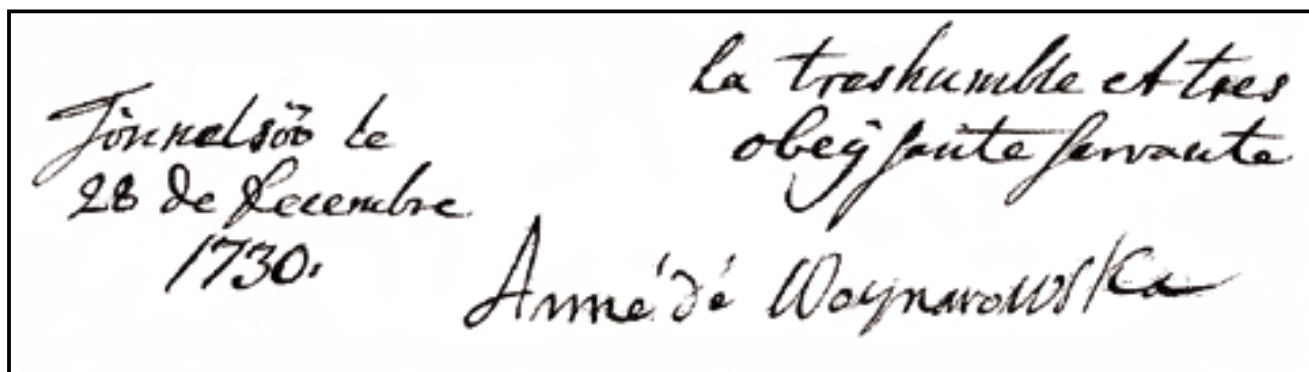 Tönnelsöö le
28 de decembre
1730.
la treshumble et tres
obeÿsante servante
Anné dé Woynarowska